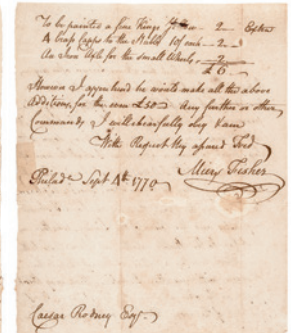 To be painted a fine Kings 2 — Extra
A brass Capps to the Nutts 10/ each — 2 —
An Iron Axle for the small Wheels — 2 —
£ 6
However I apprehend he wants make all the above
Additions, for the sum £50 Any further or other
Commands, I will chearfully obey I am
With Respect thy assured Frd
Miers Fisher
Philada. Sept 4th 1770
Caesar Rodney Esqr.